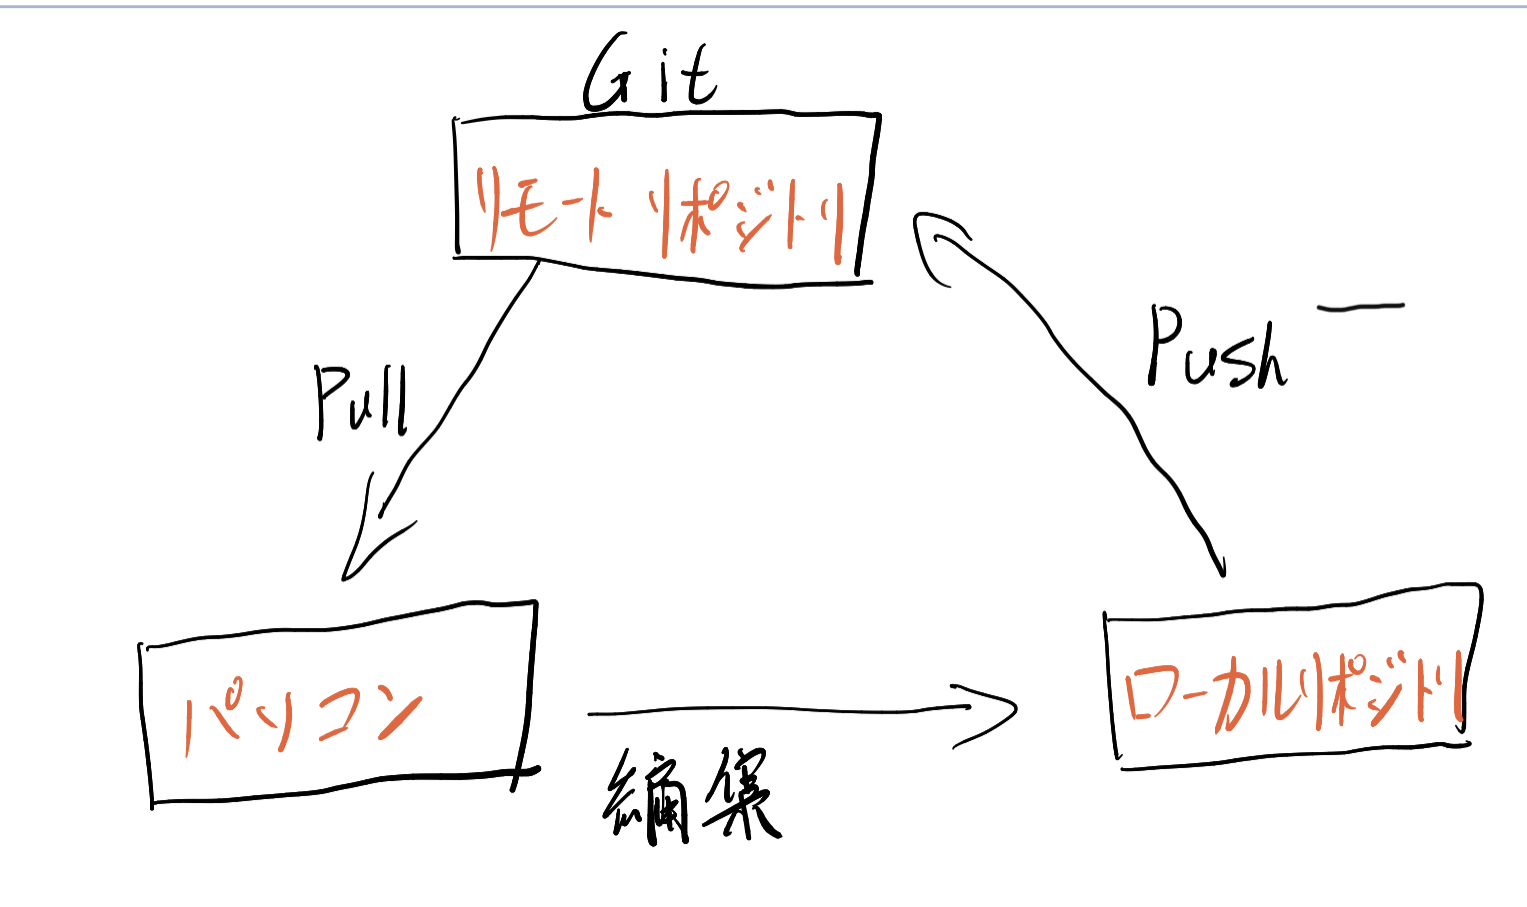 Git
リモートリポジトリ
Pull
Push
パソコン
編集
ローカルリポジトリ